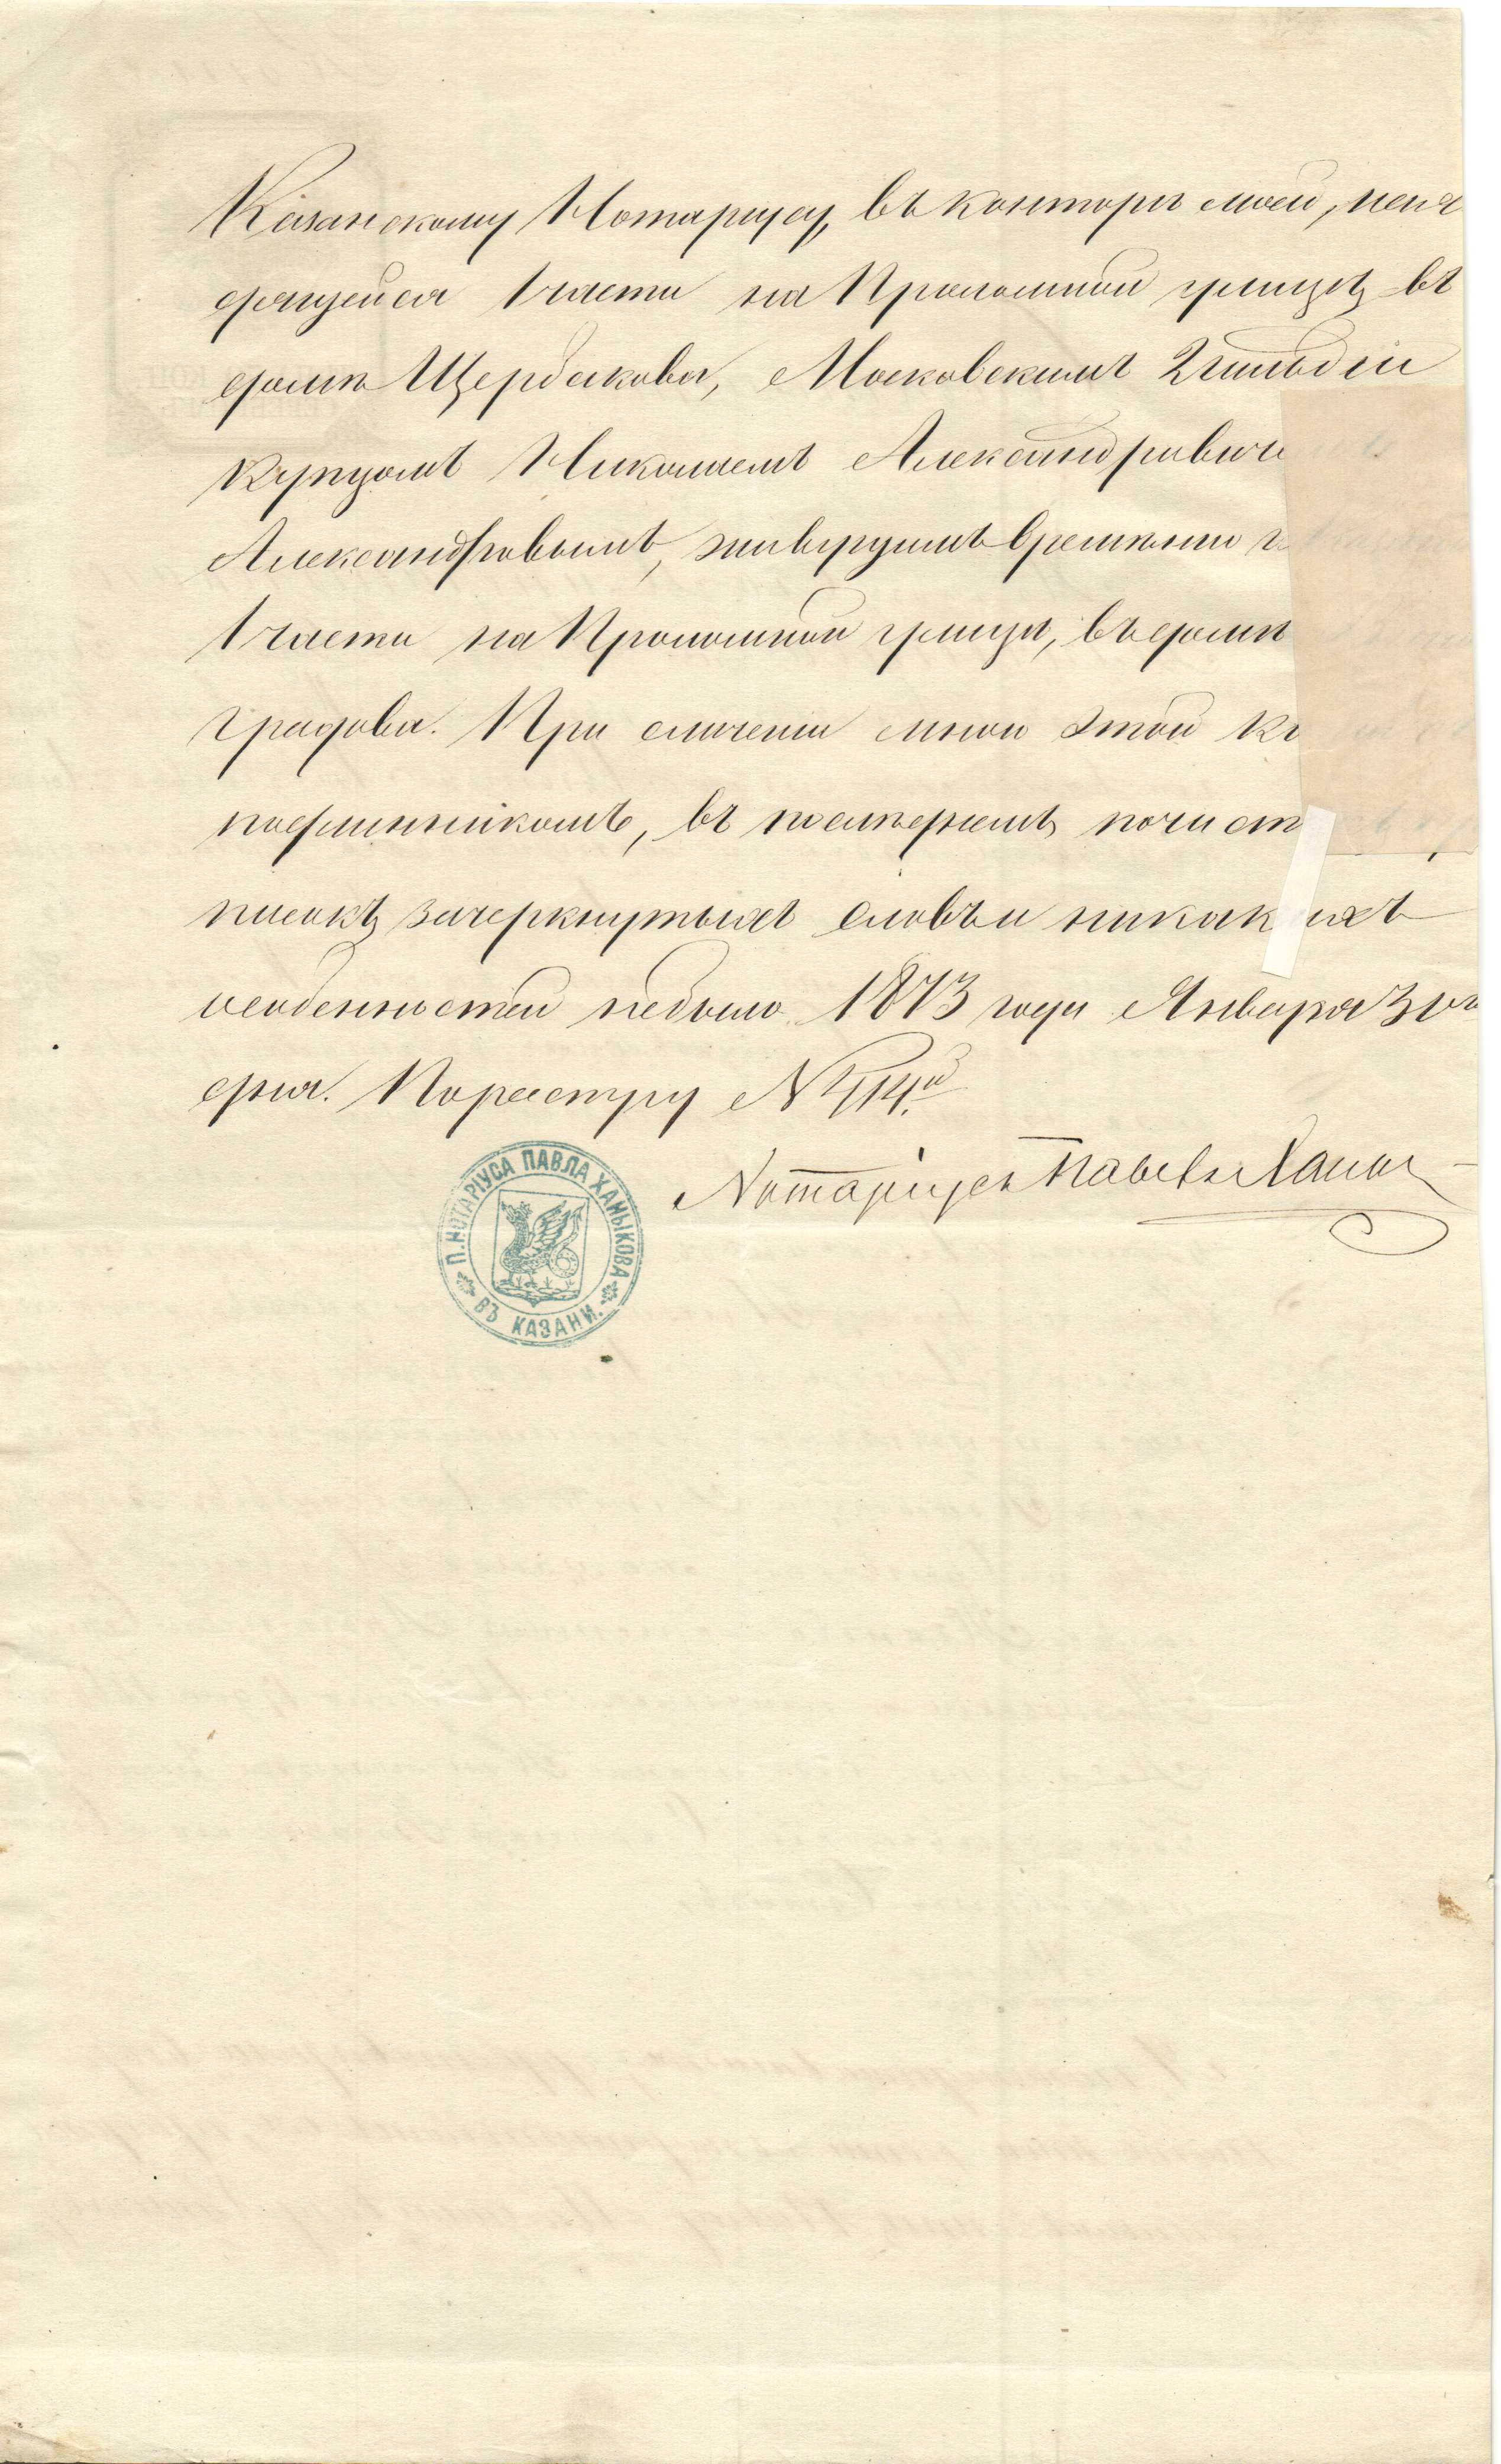 Казанскому Нотаріусу, въ конторѣ моей, нахо
дящейся 1 части на Проломной улицѣ въ
домѣ Щербакова, Московскимъ 2 гильдіи
купцомъ Николаемъ Александровиче
Александровымъ, живущимъ временно
1 части на Проломной улицѣ, въ домѣ
градова. При сличеніи мною этой ко
подлинникомъ, въ послѣднемъ почист
писокъ, зачеркнутыхъ словъ и никакихъ
особенностей небыло. 1873 года Января
дня. По реестру №
Нотаріусъ Павелъ Ханы
П. НОТАРІУСА ПАВЛА ХАНЫКОВА
ВЪ КАЗАНИ.